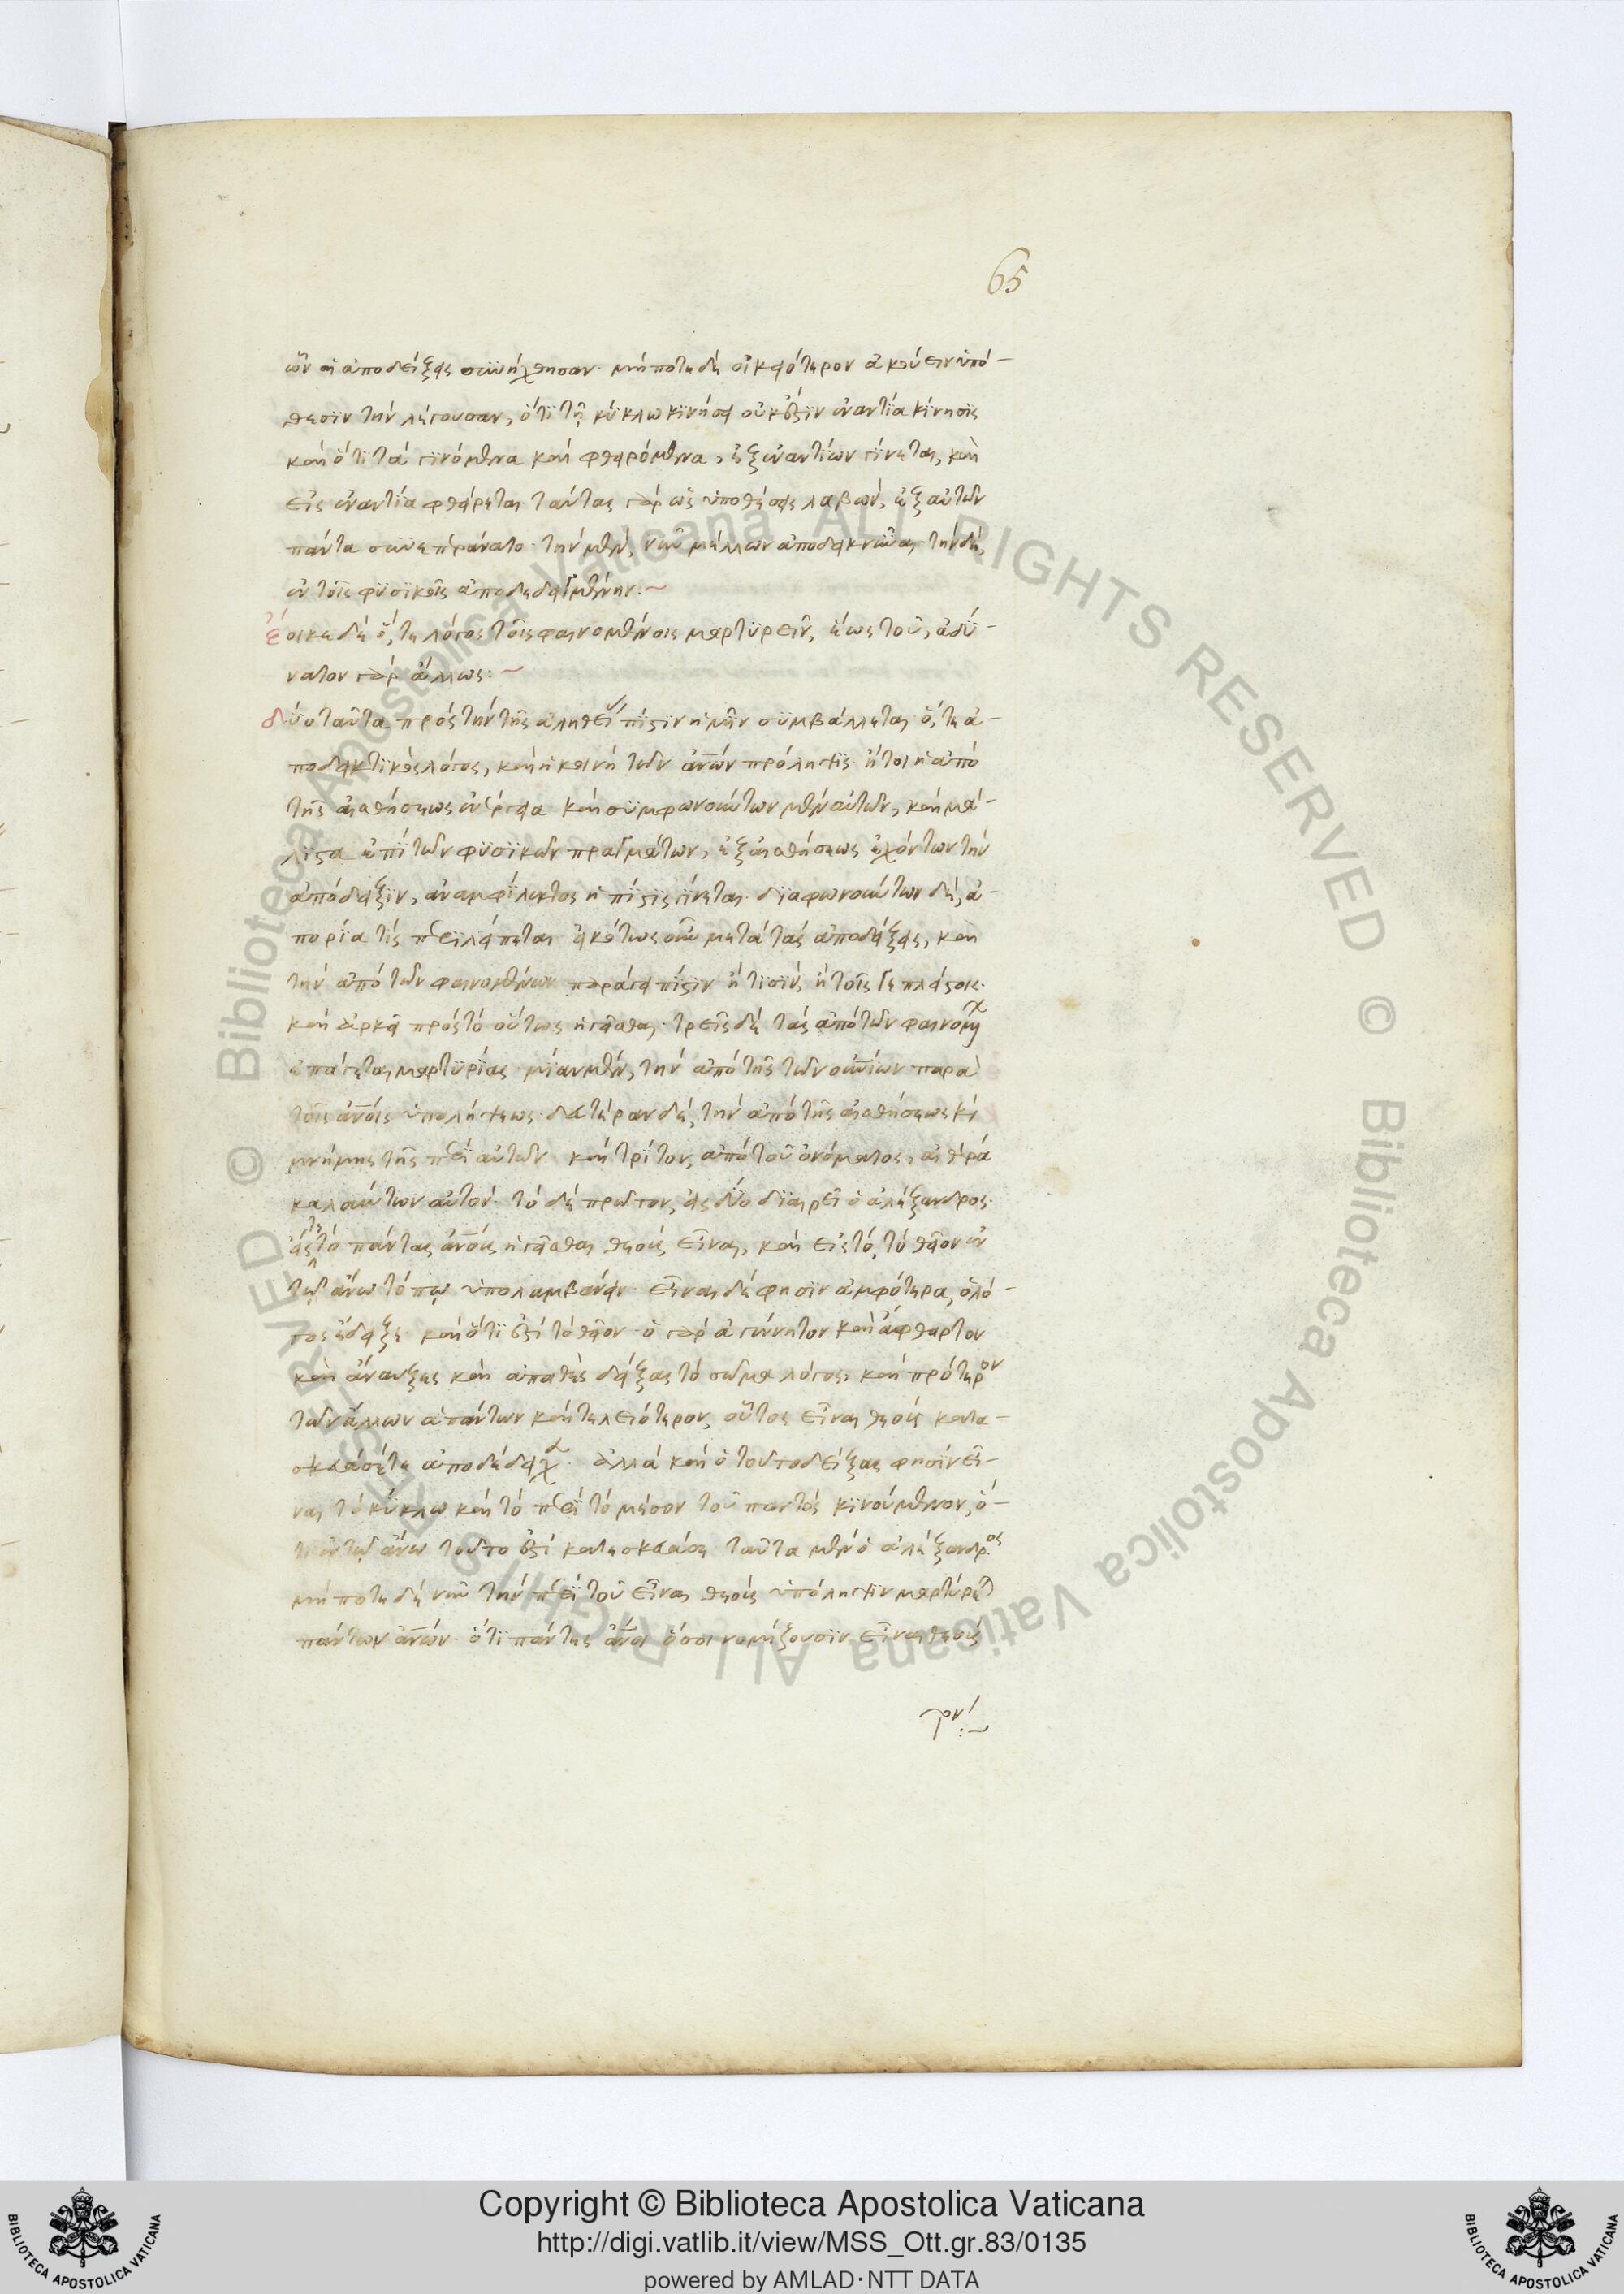 65
ὧν αἱ ἀποδείξεις συνήχθησαν· μήποτε δὲ οἰκειότερον ἀκούειν ὑπό-
θεσιν τὴν λέγουσαν, ὅτι τῇ κύκλω κινήσει οὐκ ἔστιν ἐναντία κίνησις
καὶ ὅτι τὰ γινόμενα καὶ φθειρόμενα, ἐξ ἐναντίων γίνεται, καὶ
εἰς ἐναντία φθείρεται ταύτας γὰρ ὡς ὑποθέσεις λαβὼν, ἐξ αὐτῶν
πάντα συνεπεράνατο· τὴν μὲν, νῦν μέλλων ἀποδεικνύναι· τὴν δὲ,
ἐν τοῖς φυσικοῖς ἀποδεδειγμένην:~
ἔοικε δὲ ὅ, τε λόγος τοῖς φαινομένοις μαρτυρεῖν, ἕως τοῦ, ἀδύ-
νατον γὰρ ἄλλως:~
δύο ταῦτα πρὸς τὴν τῆς ἀληθεί πίστιν ἡμῖν συμβάλλεται ὅ, τε ἀ-
ποδεικτικὸς λόγος, καὶ ἡ κοινὴ τῶν ἀνων πρόληψις ἤτοι ἡ ἀπὸ
τῆς αἰσθήσεως ἐνέργεια καὶ συμφωνούντων μὲν αὐτῶν, καὶ μά-
λιστα ἐπὶ τῶν φυσικῶν πραγμάτων, ἐξ αἰσθήσεως ἐχόντων τὴν
ἀπόδειξιν, ἀναμφίλεκτος ἡ πίστις γίνεται· διαφωνούντων δὲ, ἀ-
πορία τίς περιλείπεται εἰκότως οὖν μετὰ τὰς ἀποδείξεις, καὶ
τὴν ἀπὸ τῶν φαινομένων παράγει πίστιν ἤ τισὶν, ἢ τοῖς γε πλείστοις·
καὶ ἀρκεῖ πρὸς τὸ οὕτως ἡγεῖσθαι· τρεῖς δὲ τὰς ἀπὸ τῶν φαινομ
ἐπάγεται μαρτυρίας· μίαν μὲν, τὴν ἀπὸ τῆς τῶν οὐνίων παρὰ
τοῖς ἀνοις ὑπολήψεως· δευτέραν δὲ, τὴν ἀπὸ τῆς αἰσθήσεως κ
μνήμης τῆς περὶ αὐτῶν καὶ τρίτον, ἀπὸ τοῦ ὀνόματος, αἰθέρα
καλούντων αὐτόν· τὸ δὲ πρῶτον, εἰς δύο διαιρεῖ ὁ ἀλέξανδρος·
εἴς τε τὸ πάντας ἀνους ἡγεῖσθαι θεοὺς εἶναι, καὶ εἰς τὸ, τὸ θεῖον ἐν
τῷ ἄνω τόπῳ ὑπολαμβάνειν· εἶναι δέ φησιν ἀμφότερα, ὁ λό-
γος ἔδειξε καὶ ὅτι ἐστὶ τὸ θεῖον· ὁ γὰρ ἀγέννητον καὶ ἄφθαρτον
καὶ ἀναυξὲς καὶ ἀπαθὲς δείξας τὸ σῶμα λόγος, καὶ πρότερον
τῶν ἄλλων ἁπάντων καὶ τελειότερον, οὗτος εἶναι θεοὺς κατα-
σκευάσει τε ἀποδέδειχ· ἀλλὰ καὶ ὁ τοῦτο δείξας φησὶν εἶ-
ναι τὸ κύκλω καὶ τὸ περὶ τὸ μέσον τοῦ παντὸς κινούμενον, ὅ-
τι ἐν τῷ ἄνω τοῦτο ἐστὶ κατεσκεύασε ταῦτα μὲν ὁ ἀλέξανδρος
μήποτε δὲ νῦν τὴν περὶ τοῦ εἶναι θεοὺς ὑπόληψιν μαρτύρετ
πάντων ἀνων· ὅτι πάντες ἄνοι ὅσοι νομίζουσιν εἶναι θεοὺς
Copyright © Biblioteca Apostolica Vaticana
http://digi.vatlib.it/view/MSS_Ott.gr.83/0135
powered by AMLAD·NTT DATA